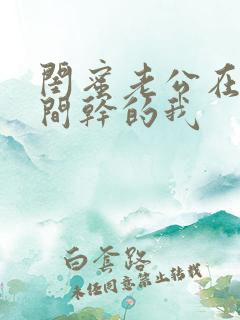 閨蜜老公在
間幹的我
白套路
未經同意禁止轉載